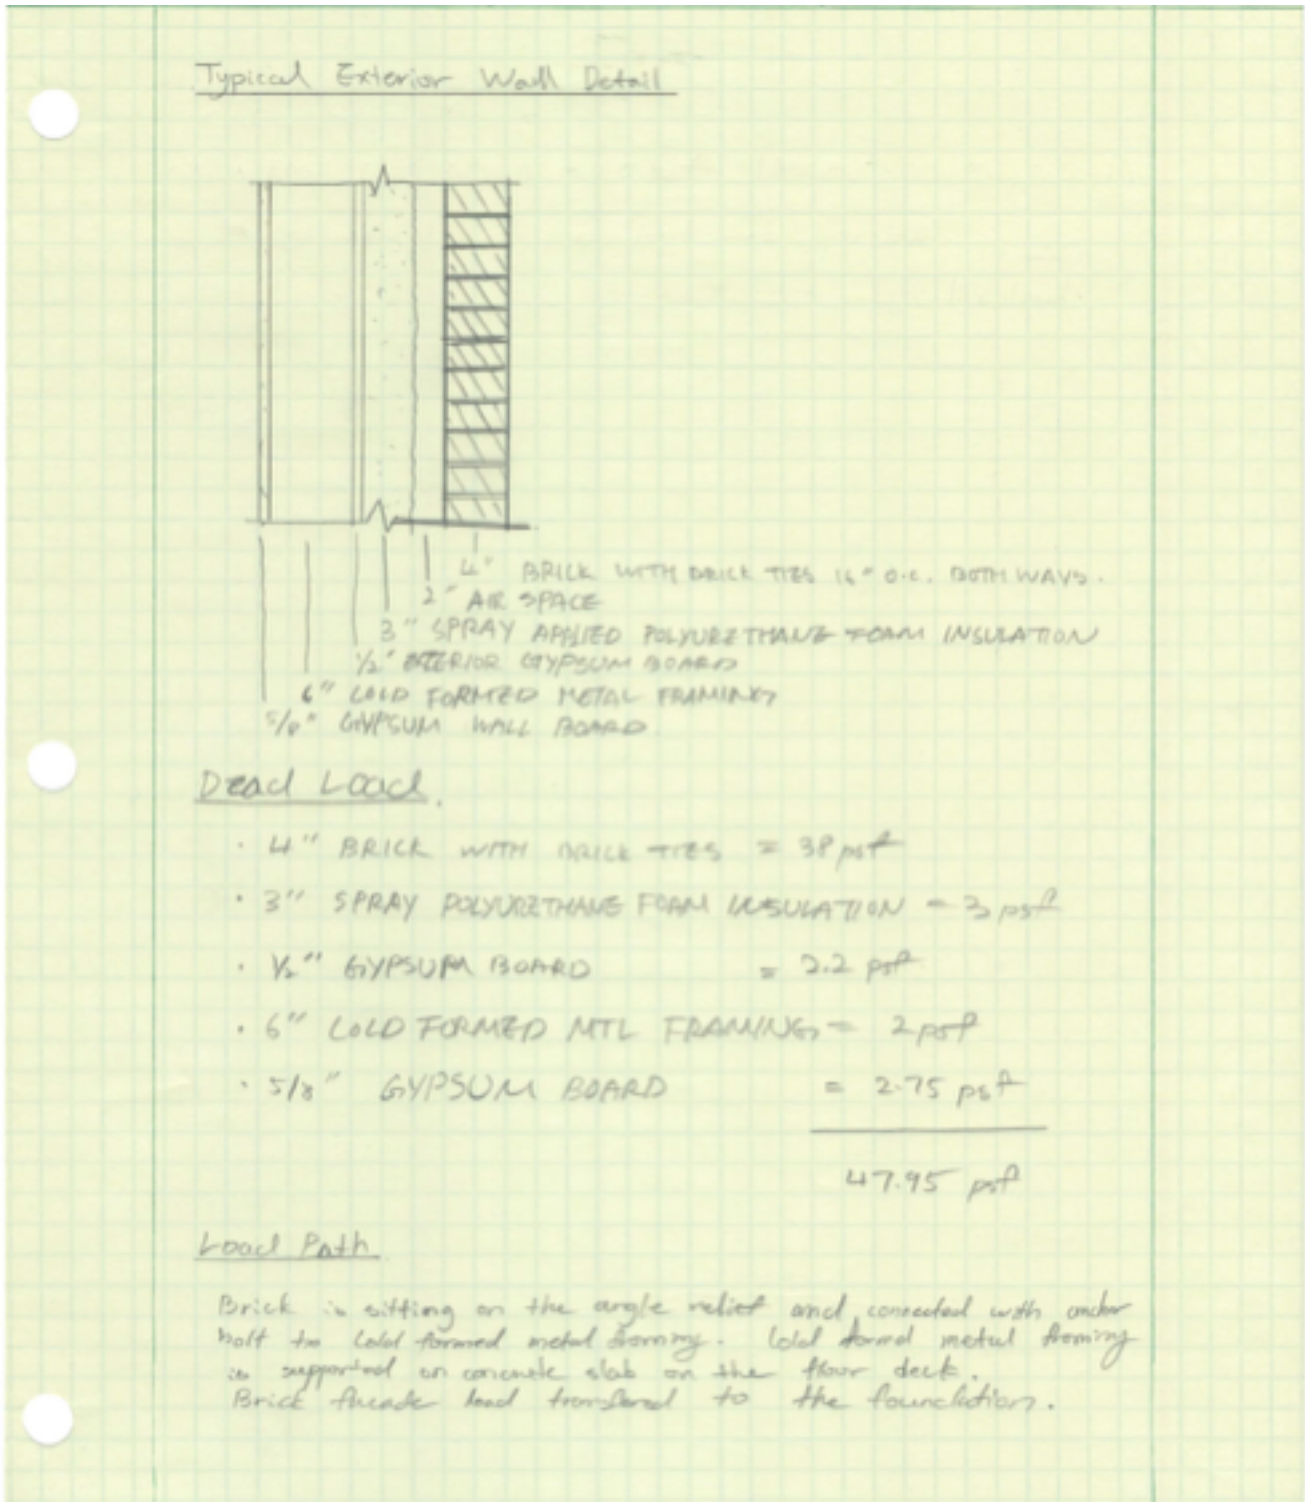 Typical Exterior Wall Detail
4" BRICK WITH BRICK TIES 16" O.C. BOTH WAYS.
2" AIR SPACE
3" SPRAY APPLIED POLYURETHANE FOAM INSULATION
1/2" EXTERIOR GYPSUM BOARD
6" COLD FORMED METAL FRAMING
5/8" GYPSUM WALL BOARD
Dead Load.
· 4" BRICK WITH BRICK TIES = 38 psf
· 3" SPRAY POLYURETHANE FOAM INSULATION = 3 psf
· 1/2" GYPSUM BOARD = 2.2 psf
· 6" COLD FORMED MTL FRAMING = 2 psf
· 5/8" GYPSUM BOARD = 2.75 psf
47.95 psf
Load Path
Brick is sitting on the angle relief and connected with anchor
bolt to Cold formed metal framing. Cold formed metal framing
is supported on concrete slab on the floor deck.
Brick facade load transfered to the foundation.